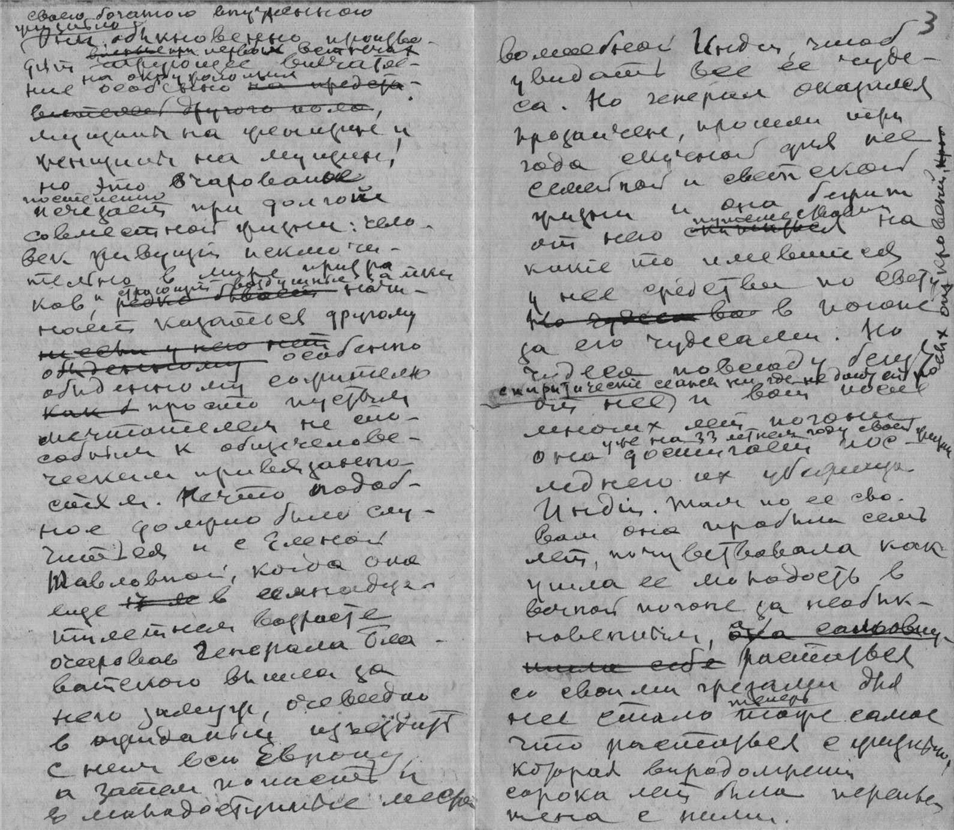 своею богатого внутреннею
жизнью
Они обыкновенно произво-
при первых встречах
дят чарующее впечатле-
на окружающих
ние особенно на предста-
вителей другого пола,
мущины на женщин и
женщины на мущин,
но это очарование
постепенно
исчезает при долгой
совместной жизни: чело-
век живущий исключи-
тельно в мире призра
ков, и строющий воздушные замки
редко бывает начи-
нает казаться другому
обыденному особенно
обыденному сожителю
как б просто пустым
мечтателем не спо-
собным к общечелове-
ческим привязанно-
стям. Нечто подоб-
ное должно было слу-
читься и с Еленой
Павловной, когда она
еще в семнадца-
тилетнем возрасте
очаровав Генерала Бла-
ватского вышла за
него замуж, очевидно
в ожидании изъездить
с ним всю Европу,
а затем попасть и
в малодоступные места
3
волшебной Индии, чтоб
увидать все ее чуде-
са. Но генерал оказался
прозаичен, прошли три
года скучной для нее
семейной и светской
жизни и она бежит
путешествовать
от него скитаться на
какие то имевшиеся
у нее средства по свету
Но чудеса во в погоне
за его чудесами. Но
чудеса повсюду бегут
спиритические сеансы нигде не дают ей
от нее, и вот после
многих лет погони
уже на 33 летнем году своей жизни
она достигает пос-
леднего их убежища
Индии. Там по ее сло-
вам она пробыла семь
лет, почувствовала как
ушла ее молодость в
вечной погоне за необык-
новенным,
расстаться
со своими грезами для
теперь
нее стало тоже самое
что расстаться с жизнью,
которая впродолжении
сорока лет была перепле
тена с ними.
откровений,